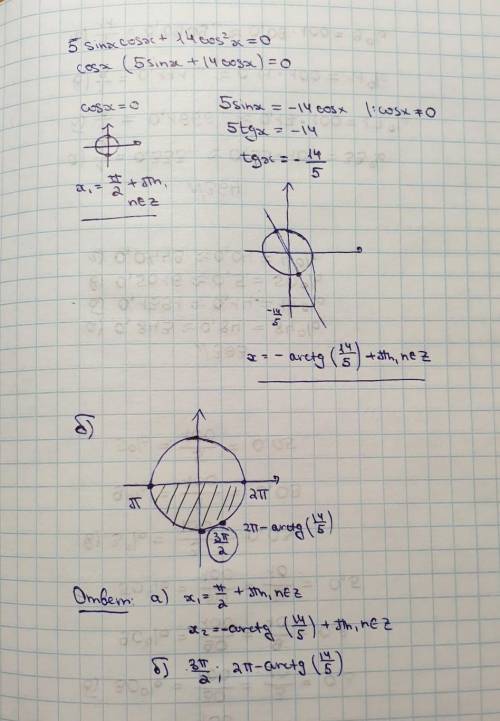 5 sinx cosx + 14 cos²x = 0
cosx (5 sinx + 14 cosx) = 0
cosx = 0
5 sinx = -14 cosx |: cosx ≠ 0
5 tgx = -14
tgx = - 14/5
x₁ = π/2 + πn,
n∈Z
-14/5
x = - arctg (14/5) + πn, n∈Z
б)
π
2π
3π/2
2π - arctg (14/5)
Ответ: а) x₁ = π/2 + πn, n∈Z
x₂ = -arctg (14/5) + πn, n∈Z
б) 3π/2; 2π - arctg (14/5)